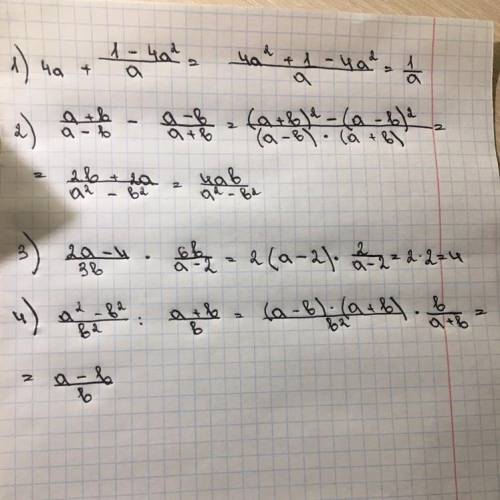 1) 4a + (1 - 4a²)/a = (4a² + 1 - 4a²)/a = 1/a
2) (a + b)/(a - b) - (a - b)/(a + b) = ((a+b)² - (a - b)²)/((a - b) · (a + b)) =
= (2b + 2a)/(a² - b²) = 4ab/(a² - b²)
3) (2a - 4)/3b · 6b/(a - 2) = 2(a - 2) · 2/(a - 2) = 2 · 2 = 4
4) (a² - b²)/b² : (a + b)/b = ((a - b) · (a + b))/b² · b/(a + b) =
= (a - b)/b